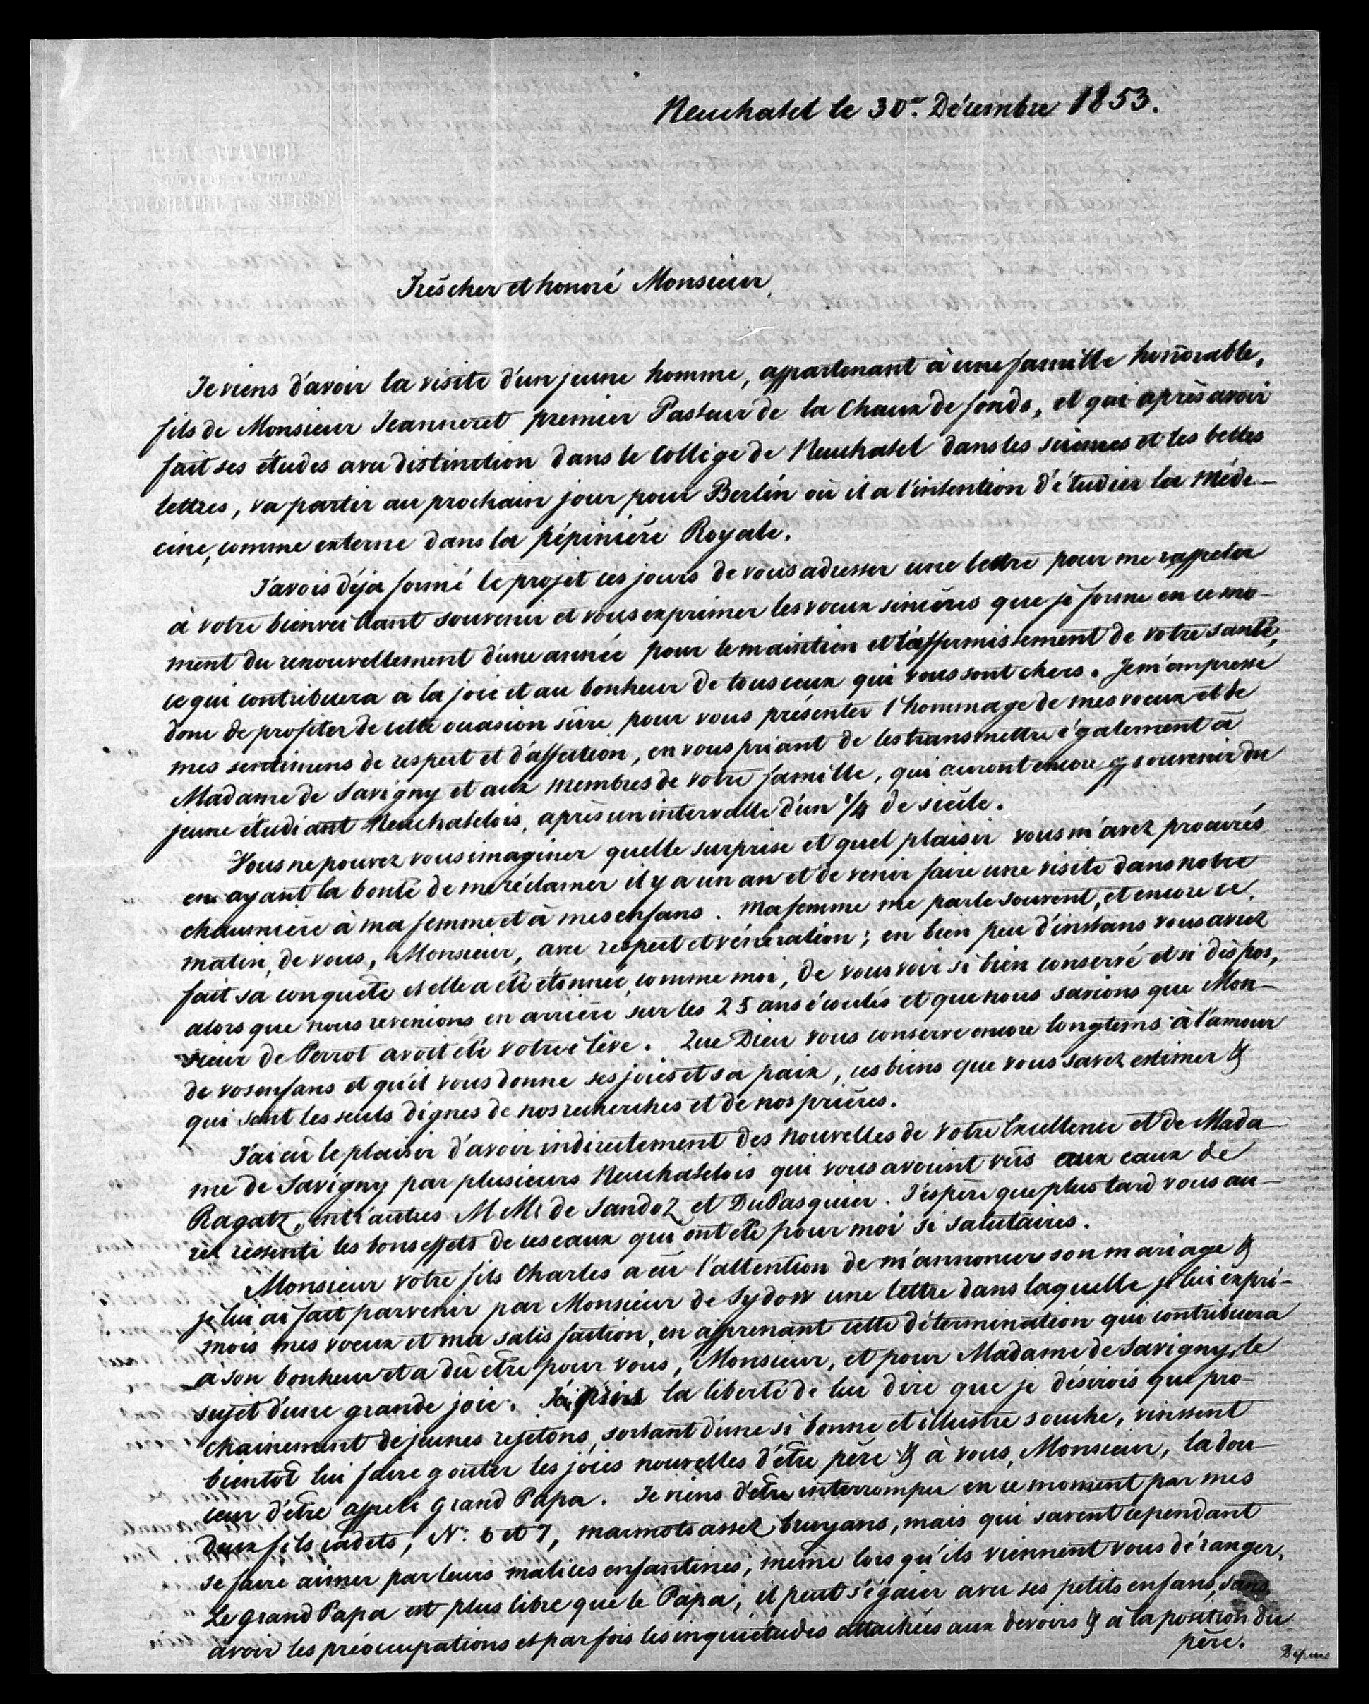 Neuchatel le 30e. Décembre 1853.
Très cher et honoré Monsieur,
Je viens d'avoir la visite d'un jeune homme, appartenant à une famille honnorable,
fils de Monsieur Jeanneret premier Pasteur de la Chaux de fonds, et qui après avoir
fait ses études avec distinction dans le Collège de Neuchatel dans les sciences et les belles
lettres, va partir au prochain jour pour Berlin où il a l'intention d'étudier la Méde-
cine, comme externe dans la pépinière Royale.
J'avois déja formé le projet ces jours de vous adresser une lettre pour me rappeler
à votre bienveillant souvenir et vous exprimer les voeux sincères que je forme en ce mo-
ment du renouvellement d'une année pour le maintien et l'affermissement de votre santé,
ce qui contribuera à la joie et au bonheur de tous ceux qui vous sont chers. Je m'empresse
donc de profiter de cette occasion sûre pour vous présenter l'hommage de mes voeux et de
mes sentimens de respect et d'affection, en vous priant de les transmettre également à
Madame de Savigny et aux membres de votre famille, qui auront encore souvenir du
jeune étudiant Neuchatelois, après un intervalle d'un 1/4 de siècle.
Vous ne pouvez vous imaginer quelle surprise et quel plaisir vous m'avez procurés
en ayant la bonté de me réclamer il y a un an et de venir faire une visite dans notre
chaumière à ma femme et à mes enfans. Ma femme me parle souvent, et encore ce
matin, de vous, Monsieur, avec respect et vénération; en bien peu d'instans vous aviez
fait sa conquête et elle a été étonnée, comme moi, de vous voir si bien conservé et si dispos,
alors que nous revenions en arrière sur les 25 ans écoulés et que nous savions que Mon-
sieur de Perrot avoit été votre élève. Que Dieu vous conserve encore longtems à l'amour
de vos enfans et qu'il vous donne ses joies et sa paix, ces biens que vous savez estimer &
qui sont les seuls dignes de nos recherches et de nos prières.
J'ai eû le plaisir d'avoir indirectement des nouvelles de votre Excellence et de Mada
me de Savigny par plusieurs Neuchatelois qui vous avoient vûs aux eaux de
Ragatz, entr'autres MMrs de Sandoz et DuPasquier. J'espère que plus tard vous au-
rez ressenti les bons effets de ces eaux qui ont été pour moi si salutaires.
Monsieur votre fils Charles a eu l'attention de m'annoncer son mariage &
je lui ai fait parvenir par Monsieur de Sydow une lettre dans laquelle je lui expri-
mois mes voeux et ma satisfaction, en apprenant cette détermination qui contribuera
a son bonheur et a du être pour vous, Monsieur, et pour Madame de Savigny, le
sujet d'une grande joie. J'ai pris la liberté de lui dire que je désirois que pro-
chainement de jeunes rejetons, sortant d'une si bonne et illustre souche, vinssent
bientôt lui faire gouter les joies nouvelles d'être père & à vous, Monsieur, la dou-
ceur d'être appelé grand Papa. Je viens d'être interrompu en ce moment par mes
deux fils cadets, No. 6 et 7, marmots assez bruyans, mais qui savent cependant
se faire aimer par leurs malices enfantines, même lors qu'ils viennent vous déranger.
Le grand Papa est plus libre que le Papa; il peut s'égaier avec ses petits enfans, sans
avoir les préoccupations et parfois les inquiétudes attachées aux devoirs & à la position du
père.